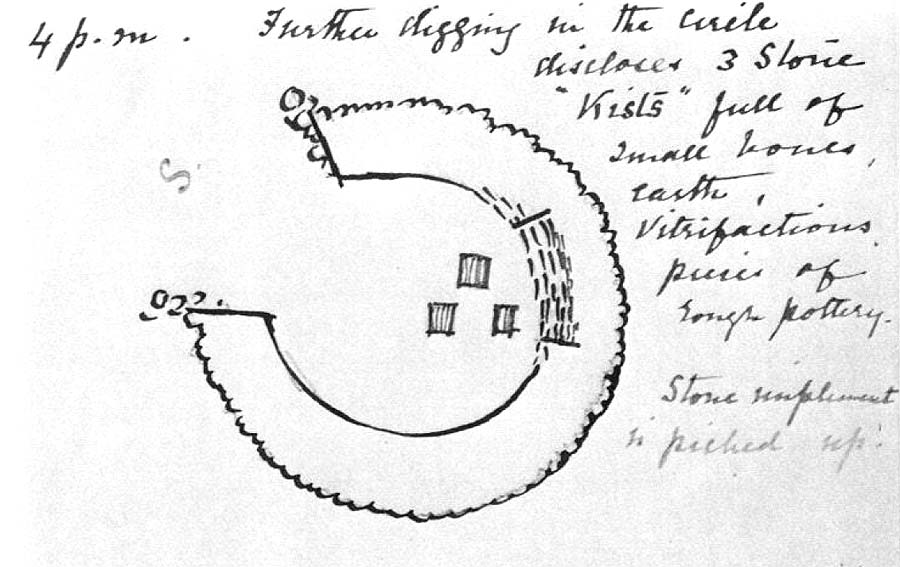 4 p.m. Further digging in the circle
discloses 3 Stone
"Kists" full of
small bones,
earth,
Vitrifactions
pieces of
rough pottery.
S.
Stone implement
is picked up.